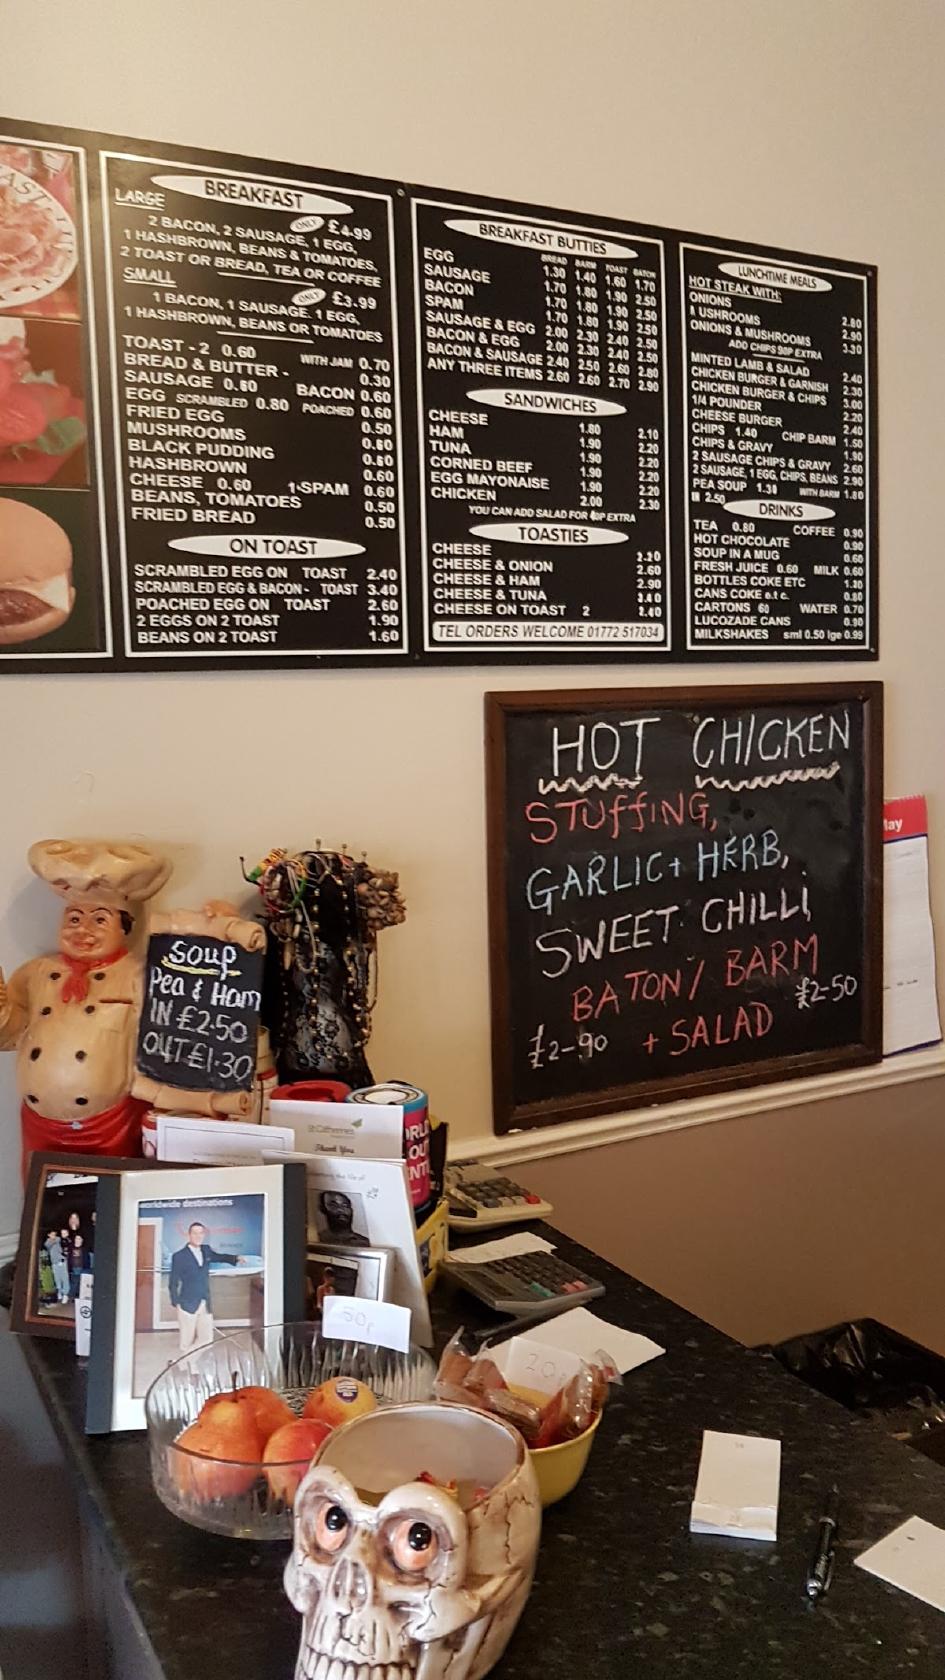 BREAKFAST
LARGE
ONLY £4-99
2 BACON, 2 SAUSAGE, 1 EGG,
1 HASHBROWN, BEANS & TOMATOES,
2 TOAST OR BREAD, TEA OR COFFEE
SMALL
ONLY £3.99
1 BACON, 1 SAUSAGE. 1 EGG,
1 HASHBROWN, BEANS OR TOMATOES
TOAST - 2 0.60 WITH JAM 0.70
BREAD & BUTTER - 0.30
SAUSAGE 0.60 BACON 0.60
EGG SCRAMBLED 0.80 POACHED 0.60
FRIED EGG 0.50
MUSHROOMS 0.60
BLACK PUDDING 0.60
HASHBROWN 0.60
CHEESE 0.60 1-SPAM 0.60
BEANS, TOMATOES 0.50
FRIED BREAD 0.50
ON TOAST
SCRAMBLED EGG ON TOAST 2.40
SCRAMBLED EGG & BACON - TOAST 3.40
POACHED EGG ON TOAST 2.60
2 EGGS ON 2 TOAST 1.90
BEANS ON 2 TOAST 1.60
BREAKFAST BUTTIES
BREAD BARM TOAST BATON
EGG 1.30 1.40 1.60 1.70
SAUSAGE 1.70 1.80 1.90 2.50
BACON 1.70 1.80 1.90 2.50
SPAM 1.70 1.80 1.90 2.50
SAUSAGE & EGG 2.00 2.30 2.40 2.50
BACON & EGG 2.00 2.30 2.40 2.50
BACON & SAUSAGE 2.40 2.50 2.60 2.80
ANY THREE ITEMS 2.60 2.60 2.70 2.90
SANDWICHES
CHEESE 1.80 2.10
HAM 1.90 2.20
TUNA 1.90 2.20
CORNED BEEF 1.90 2.20
EGG MAYONAISE 1.90 2.20
CHICKEN 2.00 2.30
YOU CAN ADD SALAD FOR 40P EXTRA
TOASTIES
CHEESE 2.20
CHEESE & ONION 2.60
CHEESE & HAM 2.90
CHEESE & TUNA
CHEESE ON TOAST 2 2.40
TEL ORDERS WELCOME 01772 517034
LUNCHTIME MEALS
HOT STEAK WITH:
ONIONS 2.80
USHROOMS 2.90
ONIONS & MUSHROOMS 3.30
ADD CHIPS 90P EXTRA
MINTED LAMB & SALAD 2.40
CHICKEN BURGER & GARNISH 2.30
CHICKEN BURGER & CHIPS 3.00
1/4 POUNDER 2.20
CHEESE BURGER 2.40
CHIPS 1.40 CHIP BARM 1.50
CHIPS & GRAVY 1.90
2 SAUSAGE CHIPS & GRAVY 2.60
2 SAUSAGE, 1 EGG, CHIPS, BEANS 2.90
PEA SOUP 1.30 WITH BARM 1.80
IN 2.50
DRINKS
TEA 0.80 COFFEE 0.90
HOT CHOCOLATE 0.90
SOUP IN A MUG 0.60
FRESH JUICE 0.60 MILK 0.60
BOTTLES COKE ETC
CANS COKE e.t c. 0.80
CARTONS 60 WATER 0.70
LUCOZADE CANS 0.90
MILKSHAKES sml 0.50 lge 0.99
HOT CHICKEN
STUFFING,
GARLIC + HERB,
SWEET CHILLI,
BATON / BARM
£2-90 + SALAD £2-50
May
Soup
Pea & Ham
IN £2.50
OUT £1.30
St Catherine's
Thank You
worldwide destinations
50p
20p